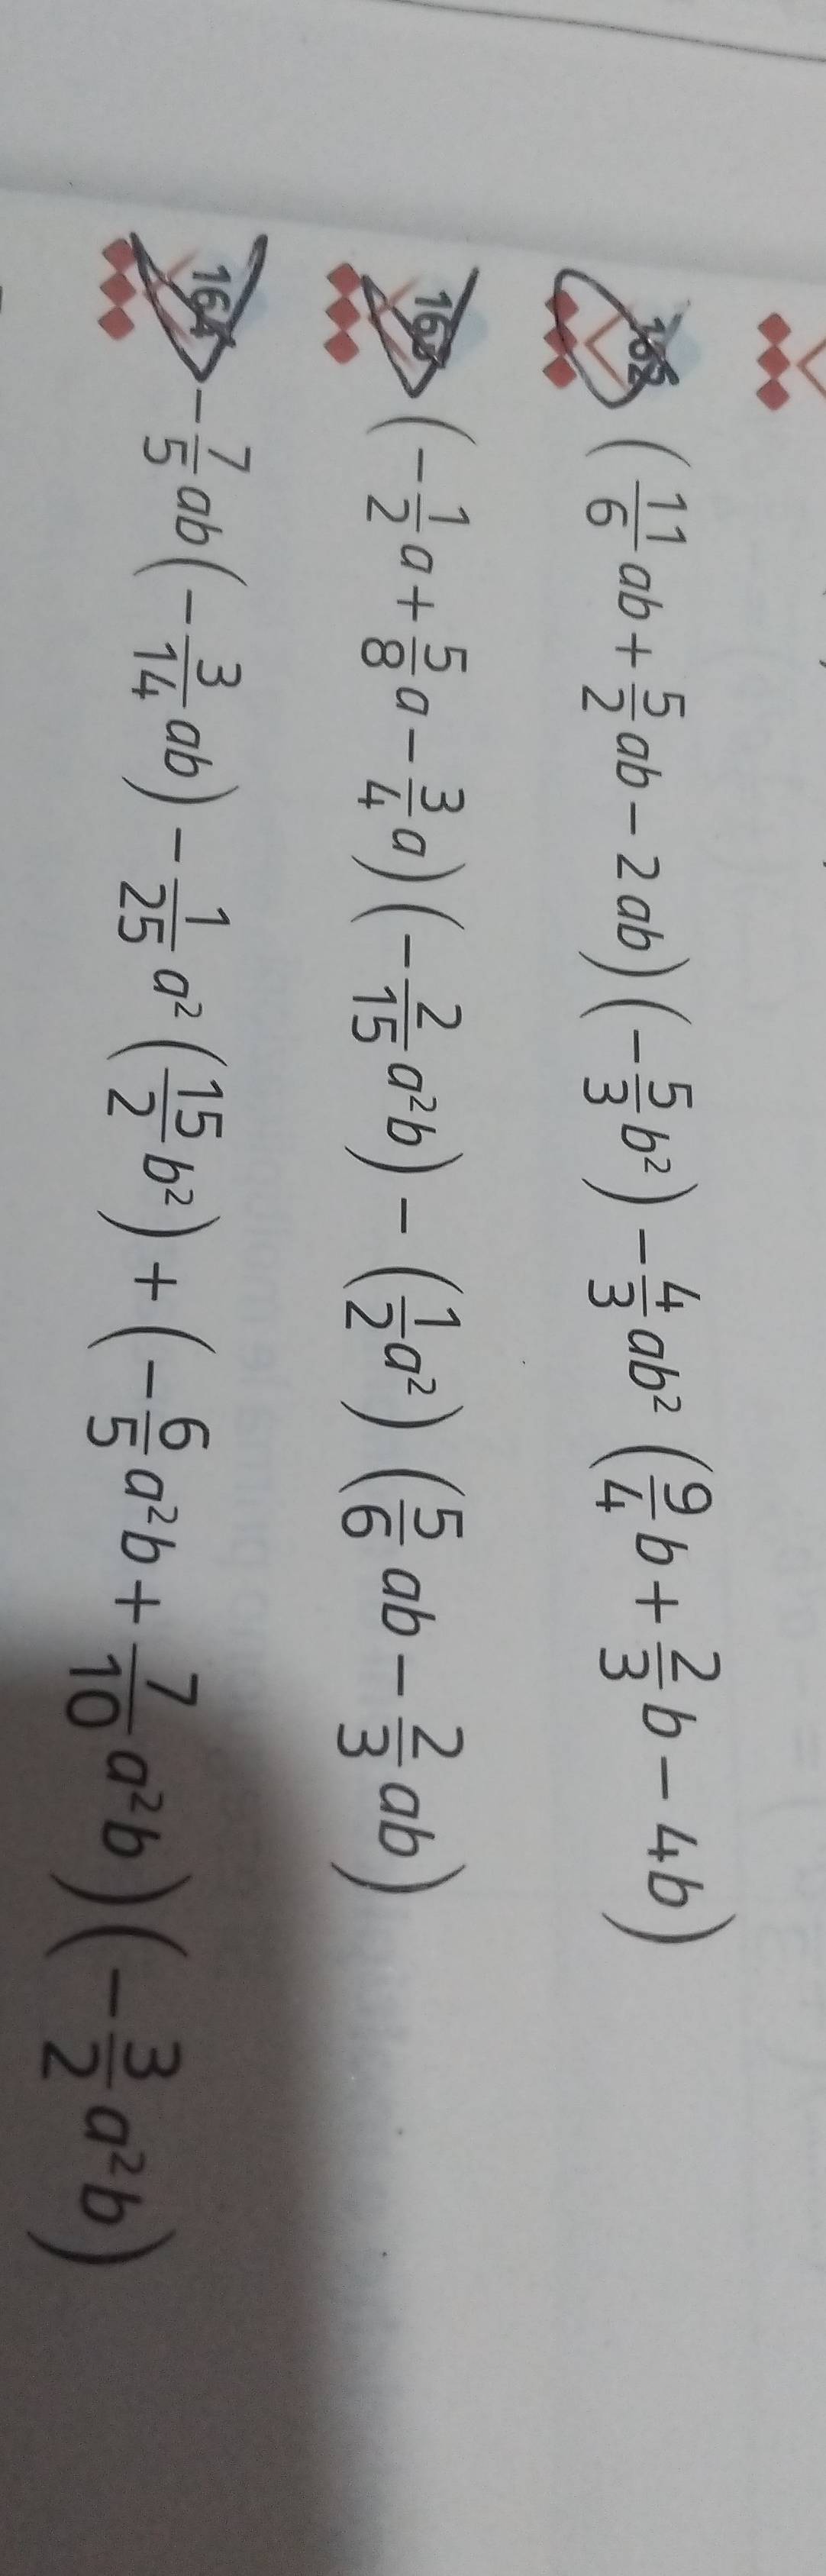 162 (11/6 ab + 5/2 ab − 2ab) (−5/3 b²) − 4/3 ab² (9/4 b + 2/3 b − 4b)
163 (−1/2 a + 5/8 a − 3/4 a) (−2/15 a²b) − (1/2 a²) (5/6 ab − 2/3 ab)
164 −7/5 ab (−3/14 ab) − 1/25 a² (15/2 b²) + (−6/5 a²b + 7/10 a²b) (−3/2 a²b)